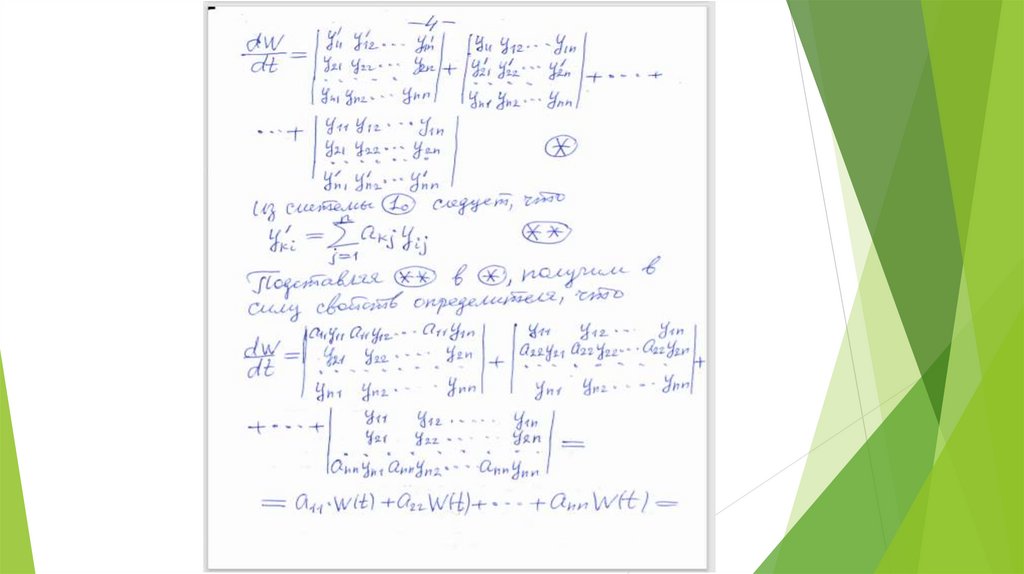 -4-
dW/dt = | y'11 y'12 ... y'1n | + | y11 y12 ... y1n | + ... +
| y21 y22 ... y2n | | y'21 y'22 ... y'2n |
| . . . . . . | | . . . . . . |
| yn1 yn2 ... ynn | | yn1 yn2 ... ynn |
... + | y11 y12 ... y1n |
| y21 y22 ... y2n | (*)
| . . . . . . |
| y'n1 y'n2 ... y'nn |
Из системы (1о) следует, что
y'ki = ∑ⁿj=1 akj yij (**)
Подставляя (**) в (*), получим в
силу свойств определителя, что
dW/dt = | a11y11 a11y12 ... a11y1n | + | y11 y12 ... y1n | +
| y21 y22 .... y2n | | a22y21 a22y22 ... a22y2n |
| . . . . . . | | . . . . . . |
| yn1 yn2 ... ynn | | yn1 yn2 .... ynn |
+ ... + | y11 y12 ..... y1n |
| y21 y22 ..... y2n | =
| . . . . . . |
| ann yn1 ann yn2 ... ann ynn |
= a11·W(t) + a22W(t) + ... + annW(t) =